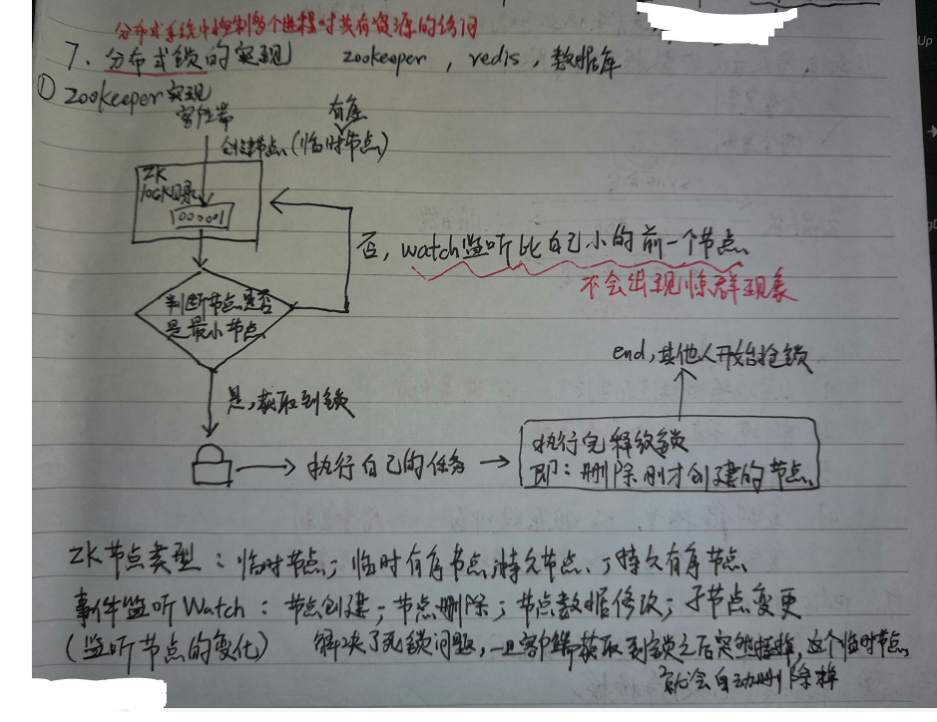 分布式系统中控制多个进程对共有资源的访问
7、分布式锁的实现 zookeeper , redis , 数据库
① zookeeper实现
客户端
有序
创建节点 (临时节点)
ZK
lock目录
000001
否, watch监听比自己小的前一个节点
不会出现惊群现象
判断节点是否
是最小节点
end, 其他人开始抢锁
是, 获取到锁
执行完释放锁
执行自己的任务
即: 删除刚才创建的节点
ZK节点类型: 临时节点; 临时有序节点; 持久节点、; 持久有序节点
事件监听Watch: 节点创建; 节点删除; 节点数据修改; 子节点变更
(监听节点的变化) 解决了死锁问题, 一旦客户端获取到锁之后突然挂掉, 这个临时节点
就会自动删除掉